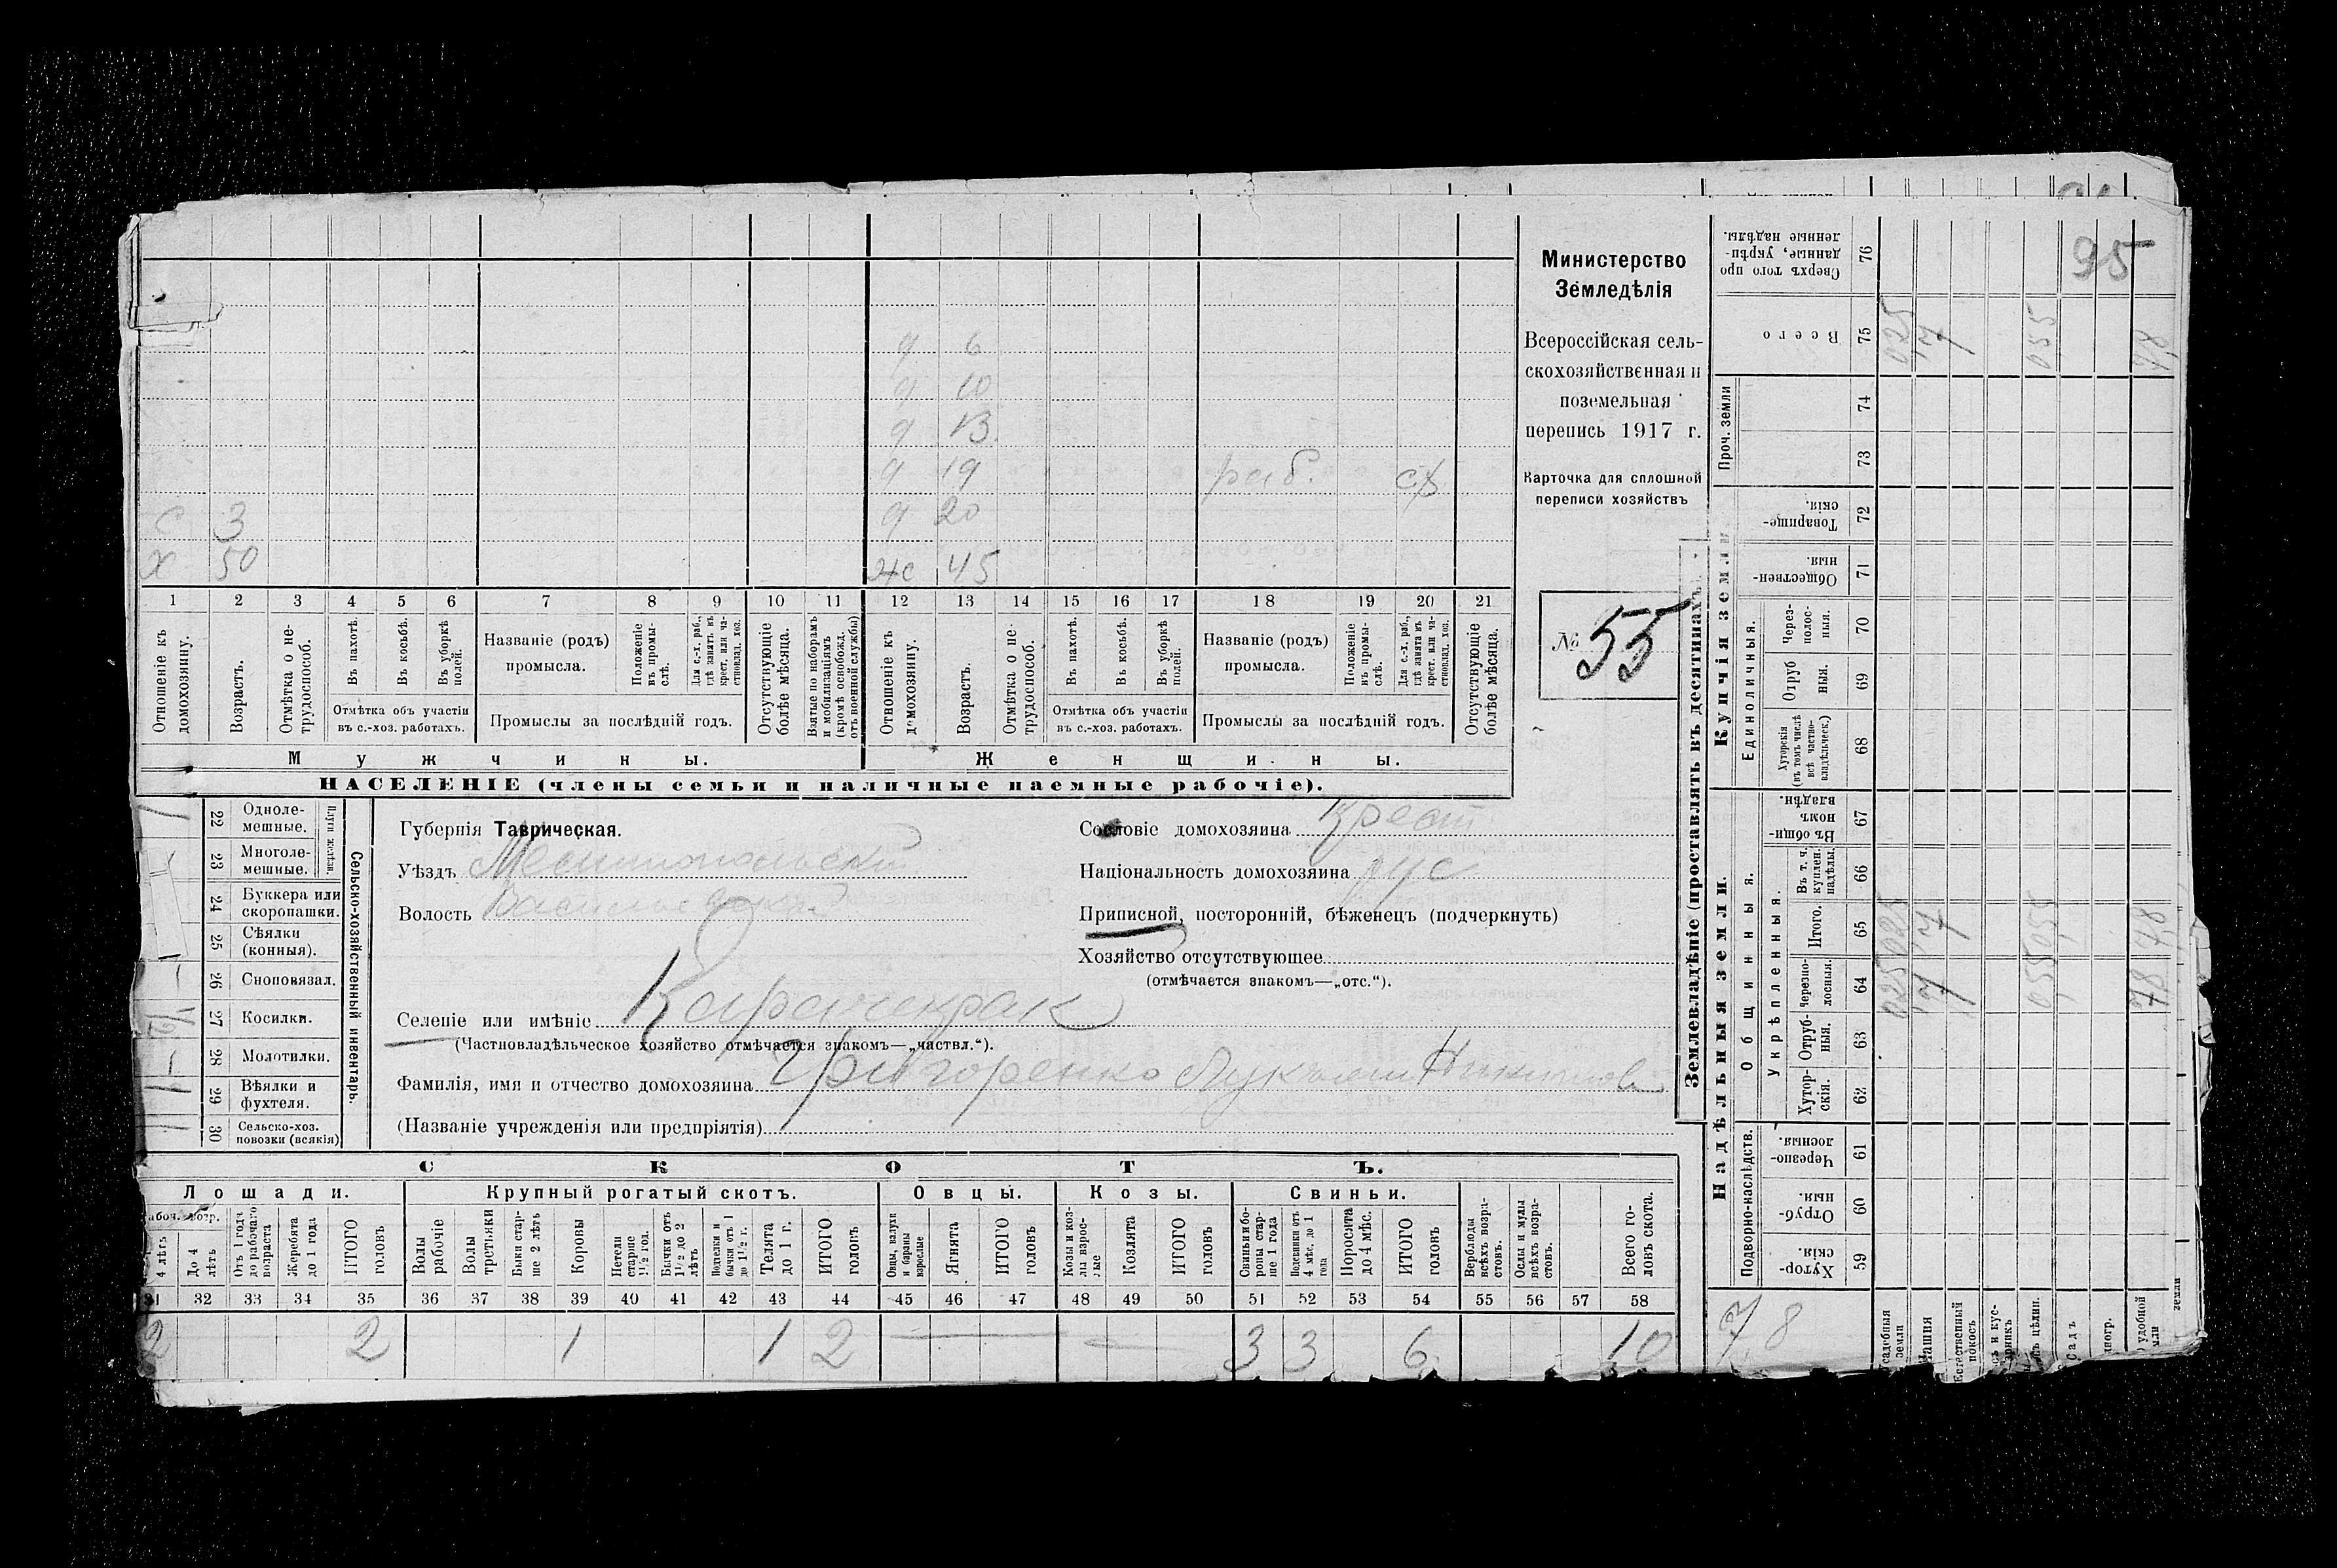 95
Министерство
Земледѣлія
Всероссійская сель-
скохозяйственная и
поземельная
перепись 1917 г.
Карточка для сплошной
переписи хозяйствъ
№ 55
д 6
д 10
д 13
д 19 раб. сх
д 20
с 3
х 50 же 45
1 2 3 4 5 6 7 8 9 10 11 12 13 14 15 16 17 18 19 20 21
Отношеніе къ домохозяину.
Возрастъ.
Отмѣтка о не-трудоспособ.
Въ пахотѣ.
Въ косьбѣ.
Въ уборкѣ полей.
Отмѣтка объ участіи
въ с.-хоз. работахъ.
Названіе (родъ)
промысла.
Положеніе въ промы-слѣ.
Для с.-х. раб., гдѣ занятъ въ крест. или ча-стновлад. хоз.
Промыслы за послѣдній годъ.
Отсутствующіе болѣе мѣсяца.
Взятые по наборамъ и мобилизаціямъ (кромѣ освобожд. отъ военной службы)
Отношеніе къ домохозяину.
Возрастъ.
Отмѣтка о не-трудоспособ.
Въ пахотѣ.
Въ косьбѣ.
Въ уборкѣ полей.
Отмѣтка объ участіи
въ с.-хоз. работахъ.
Названіе (родъ)
промысла.
Положеніе въ промы-слѣ.
Для с.-х. раб., гдѣ занятъ въ крест. или ча-стновлад. хоз.
Промыслы за послѣдній годъ.
Отсутствующіе болѣе мѣсяца.
Мужчины. Женщины.
НАСЕЛЕНІЕ (члены семьи и наличные наемные рабочіе).
22 Одноле-мешные.
23 Многоле-мешные.
Плуги желѣзн.
24 Буккера или скоропашки.
25 Сѣялки (конныя).
26 Сноповязал.
27 Косилки.
28 Молотилки.
29 Вѣялки и фухтеля.
30 Сельско-хоз. повозки (всякія)
Сельско-хозяйственный инвентарь.
Губернія Таврическая.
Уѣздъ Мелитопольскій
Волость Васильевская
Селеніе или имѣніе Карачекрак
(Частновладѣльческое хозяйство отмѣчается знакомъ—„частвл.“).
Фамилія, имя и отчество домохозяина Григоренко
(Названіе учрежденія или предпріятія)
Сословіе домохозяина крест
Національность домохозяина рус
Приписной, посторонній, бѣженецъ (подчеркнуть)
Хозяйство отсутствующее
(отмѣчается знакомъ—„отс.“).
СКОТЪ.
Лошади. Крупный рогатый скотъ. Овцы. Козы. Свиньи.
4 лѣтъ
До 4 лѣтъ
Отъ 1 года до рабочаго возраста
Жеребята до 1 года
ИТОГО головъ
Волы рабочіе
Волы третьяки
Быки стар-ше 2 лѣтъ
Коровы
Нетели старше 1½ год.
Бычки отъ 1½ до 2 лѣтъ
Подтелки и бычки отъ 1 до 1½ г.
Телята до 1 г.
ИТОГО головъ
Овцы, валухи и бараны взрослые
Ягнята
ИТОГО головъ
Козы и коз-лы взрос-лые
Козлята
ИТОГО головъ
Свиньи и бо-ровы стар-ше 1 года
Подсвинки отъ 4 мѣс. до 1 года
Поросята до 4 мѣс.
ИТОГО головъ
Верблюды всѣхъ возра-стовъ.
Ослы и мулы всѣхъ возра-стовъ.
Всего го-ловъ скота.
31 32 33 34 35 36 37 38 39 40 41 42 43 44 45 46 47 48 49 50 51 52 53 54 55 56 57 58
2 2 1 1 2 3 3 6 10
Землевладѣніе (проставлять въ десятинахъ).
Надѣльныя земли. Купчія земли.
Подворно-наслѣдств.
Общинныя.
Укрѣпленныя.
Единоличныя.
Проч. земли
Хутор-скія. 59
Отруб-ныя. 60
Черезпо-лосныя. 61
Хутор-скія. 62
Отруб-ныя. 63
Черезпо-лосныя. 64
Итого. 65
Въ т. ч. куплен. надѣлы. 66
Въ общи-номъ владѣн. 67
Хуторскія (въ томъ числѣ всѣ частно-владѣльческ.) 68
Отруб ныя. 69
Через-полос-ныя. 70
Обществен-ныя. 71
Товарище-скія. 72
73
74
Всего 75
Сверхъ того про данные, укрѣп-ленные надѣлы. 76
025 025 025
055 055 055
7,8 7,8 7,8
7,8
садебныя земли
Пашня
Естественный покосъ
Садъ
удобной
земли